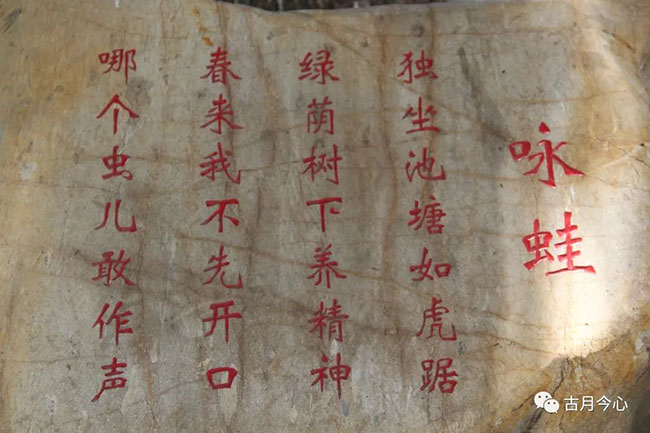 咏蛙
独坐池塘如虎踞
绿荫树下养精神
春来我不先开口
哪个虫儿敢作声
古月今心